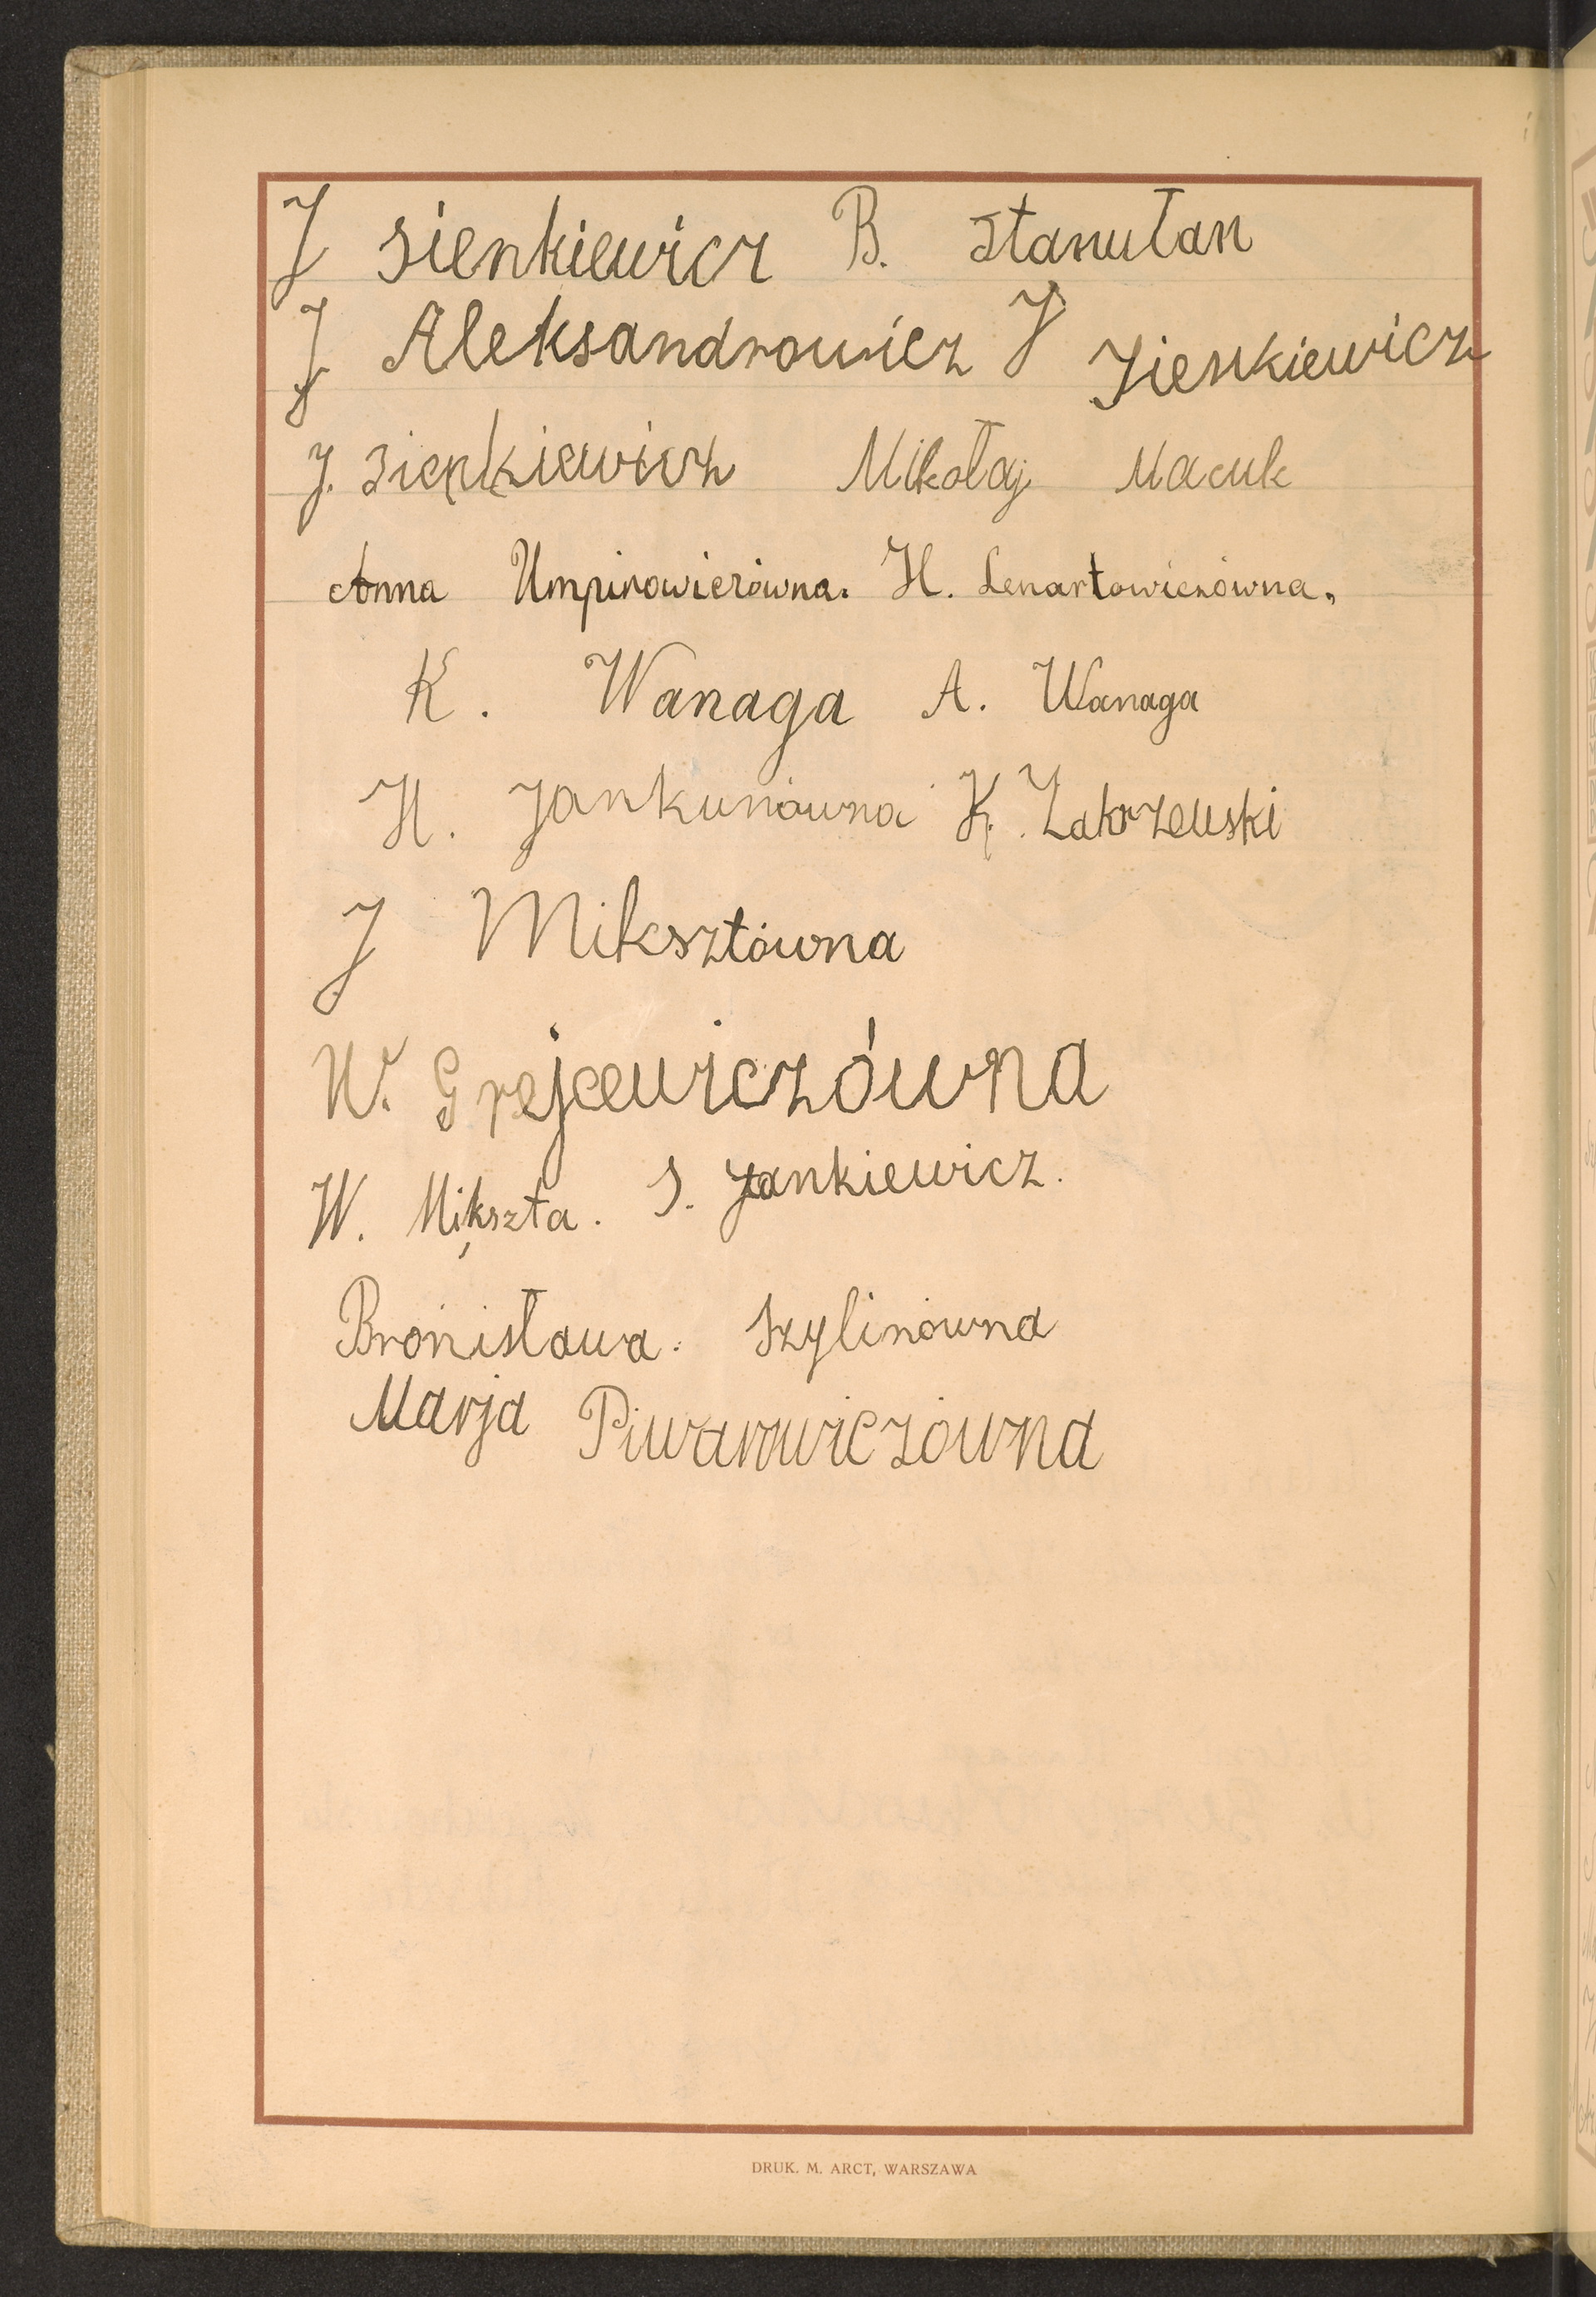 J Sienkiewicz B. Stanułan
J Aleksandrowicz J Sienkiewicz
J. Sienkiewicz Mikołaj Macuk
Anna Umpirowiczówna. H. Lenartowiczówna.
K. Wanaga A. Wanaga
H. Jankunówna K. Zakrzewski
J Miksztówna
W. Grejcewiczówna
W. Mikszta. S. Jankiewicz.
Bronisława. Szylinówna
Marja Piwarowiczówna
DRUK. M. ARCT, WARSZAWA